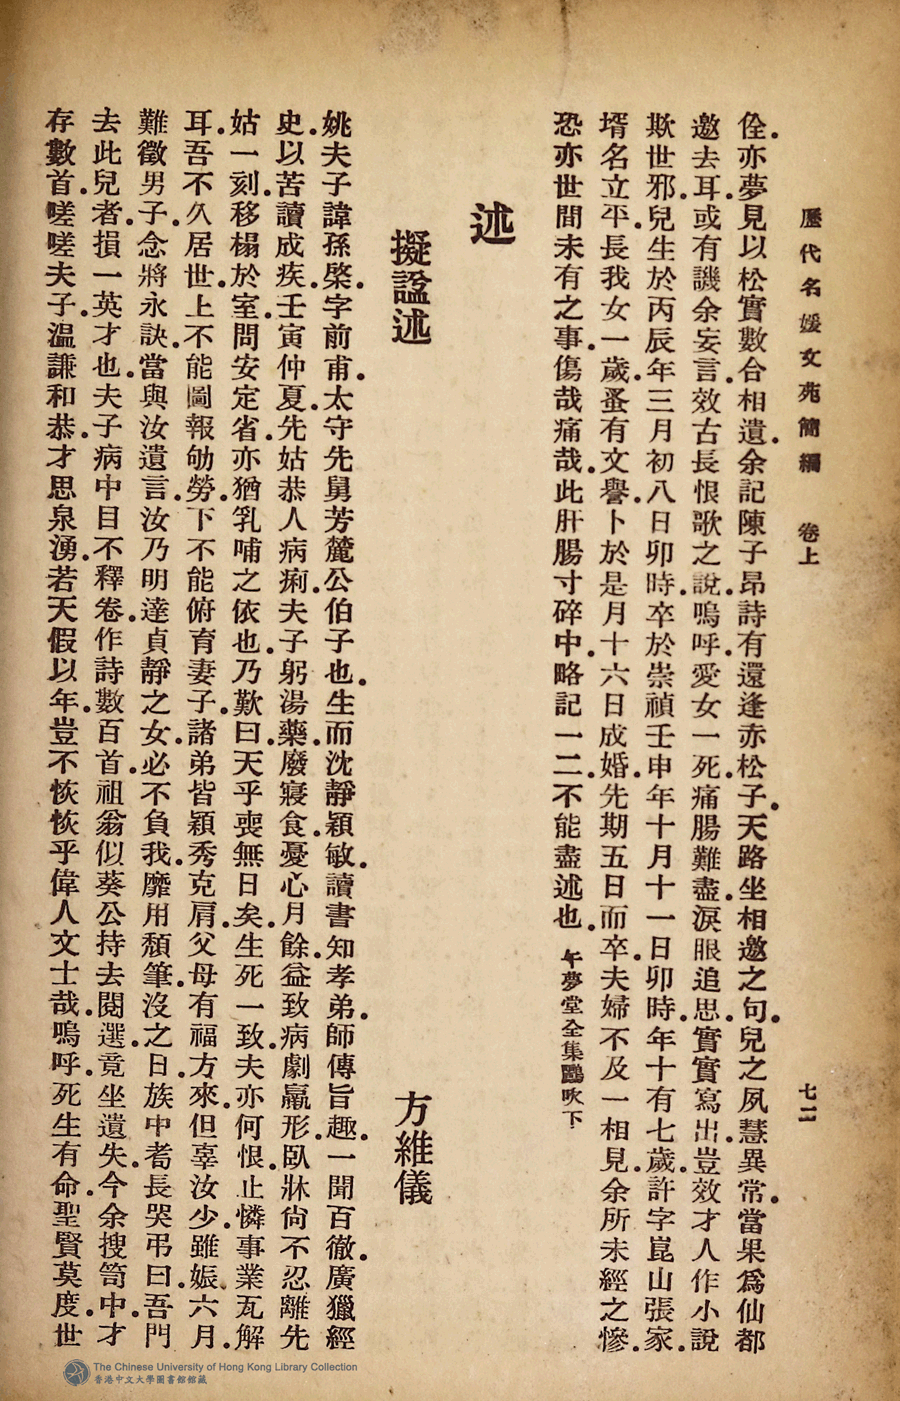 歷代名媛文苑簡編 卷上 七二
佺.亦夢見以松實數合相遺.余記陳子昂詩有還逢赤松子.天路坐相邀之句.兒之夙慧異常.當果爲仙都
邀去耳.或有譏余妄言.效古長恨歌之說.嗚呼.愛女一死.痛腸難盡.淚眼追思.實實寫出.豈效才人作小說
欺世邪.兒生於丙辰年三月初八日卯時.卒於崇禎壬申年十月十一日卯時.年十有七歲.許字崑山張家.
壻名立平.長我女一歲.蚤有文譽.卜於是月十六日成婚.先期五日而卒.夫婦不及一相見.余所未經之慘.
恐亦世間未有之事.傷哉痛哉.此肝腸寸碎中.略記一二.不能盡述也.午夢堂全集鸝吹下
述
擬諡述 方維儀
姚夫子諱孫棨.字前甫.太守先舅芳麓公伯子也.生而沈靜穎敏.讀書知孝弟.師傳旨趣.一聞百徹.廣獵經
史.以苦讀成疾.壬寅仲夏.先姑恭人病痢.夫子躬湯藥.廢寢食.憂心月餘.益致病劇羸形.臥牀尙不忍離先
姑一刻.移榻於室.問安定省.亦猶乳哺之依也.乃歎曰.天乎喪無日矣.生死一致.夫亦何恨.止憐事業瓦解
耳.吾不久居世上.不能圖報劬勞.下不能俯育妻子.諸弟皆穎秀克肩.父母有福方來.但辜汝少.雖娠六月.
難徵男子.念將永訣.當與汝遺言.汝乃明達貞靜之女.必不負我.靡用頹筆.沒之日.族中耆長哭弔曰.吾門
去此兒者.損一英才也.夫子病中目不釋卷.作詩數百首.祖翁似葵公持去閱選.竟坐遺失.今余搜笥中.才
存數首.嗟嗟夫子.溫謙和恭.才思泉湧.若天假以年.豈不恢恢乎偉人文士哉.嗚呼.死生有命.聖賢莫度.世
The Chinese University of Hong Kong Library Collection
香港中文大學圖書館館藏